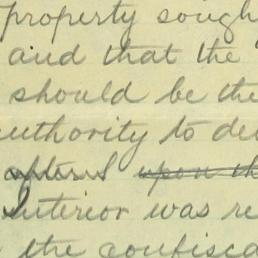 property sough
and that the
should be the
authority to de
upon th
Interior was re
the confisca